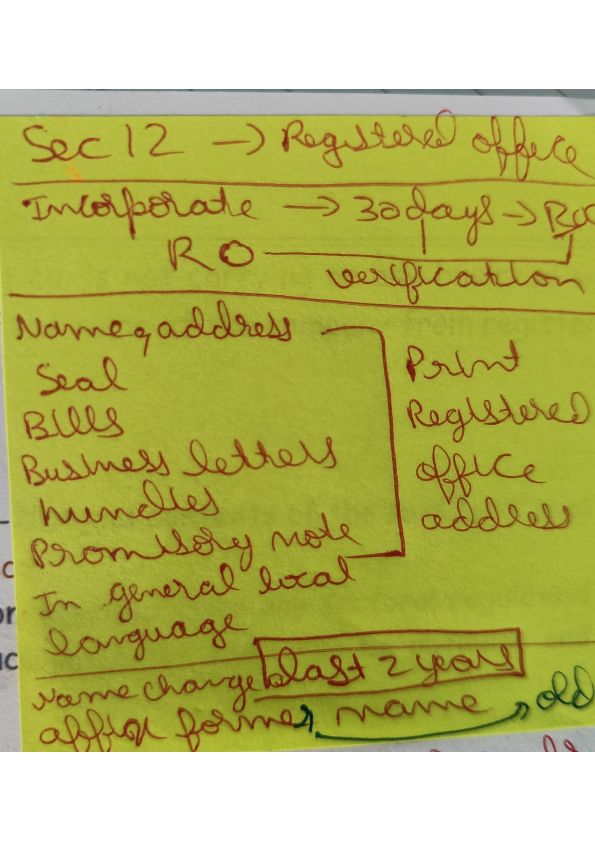 Sec 12 → Registered office
Incorporate → 30 days → ROC
RO
verification
Name, address
Seal
Bills
Business letters
hundies
Promisory note
Print
Registered
office
address
In general local
language
Name change last 2 years
affix former name → old